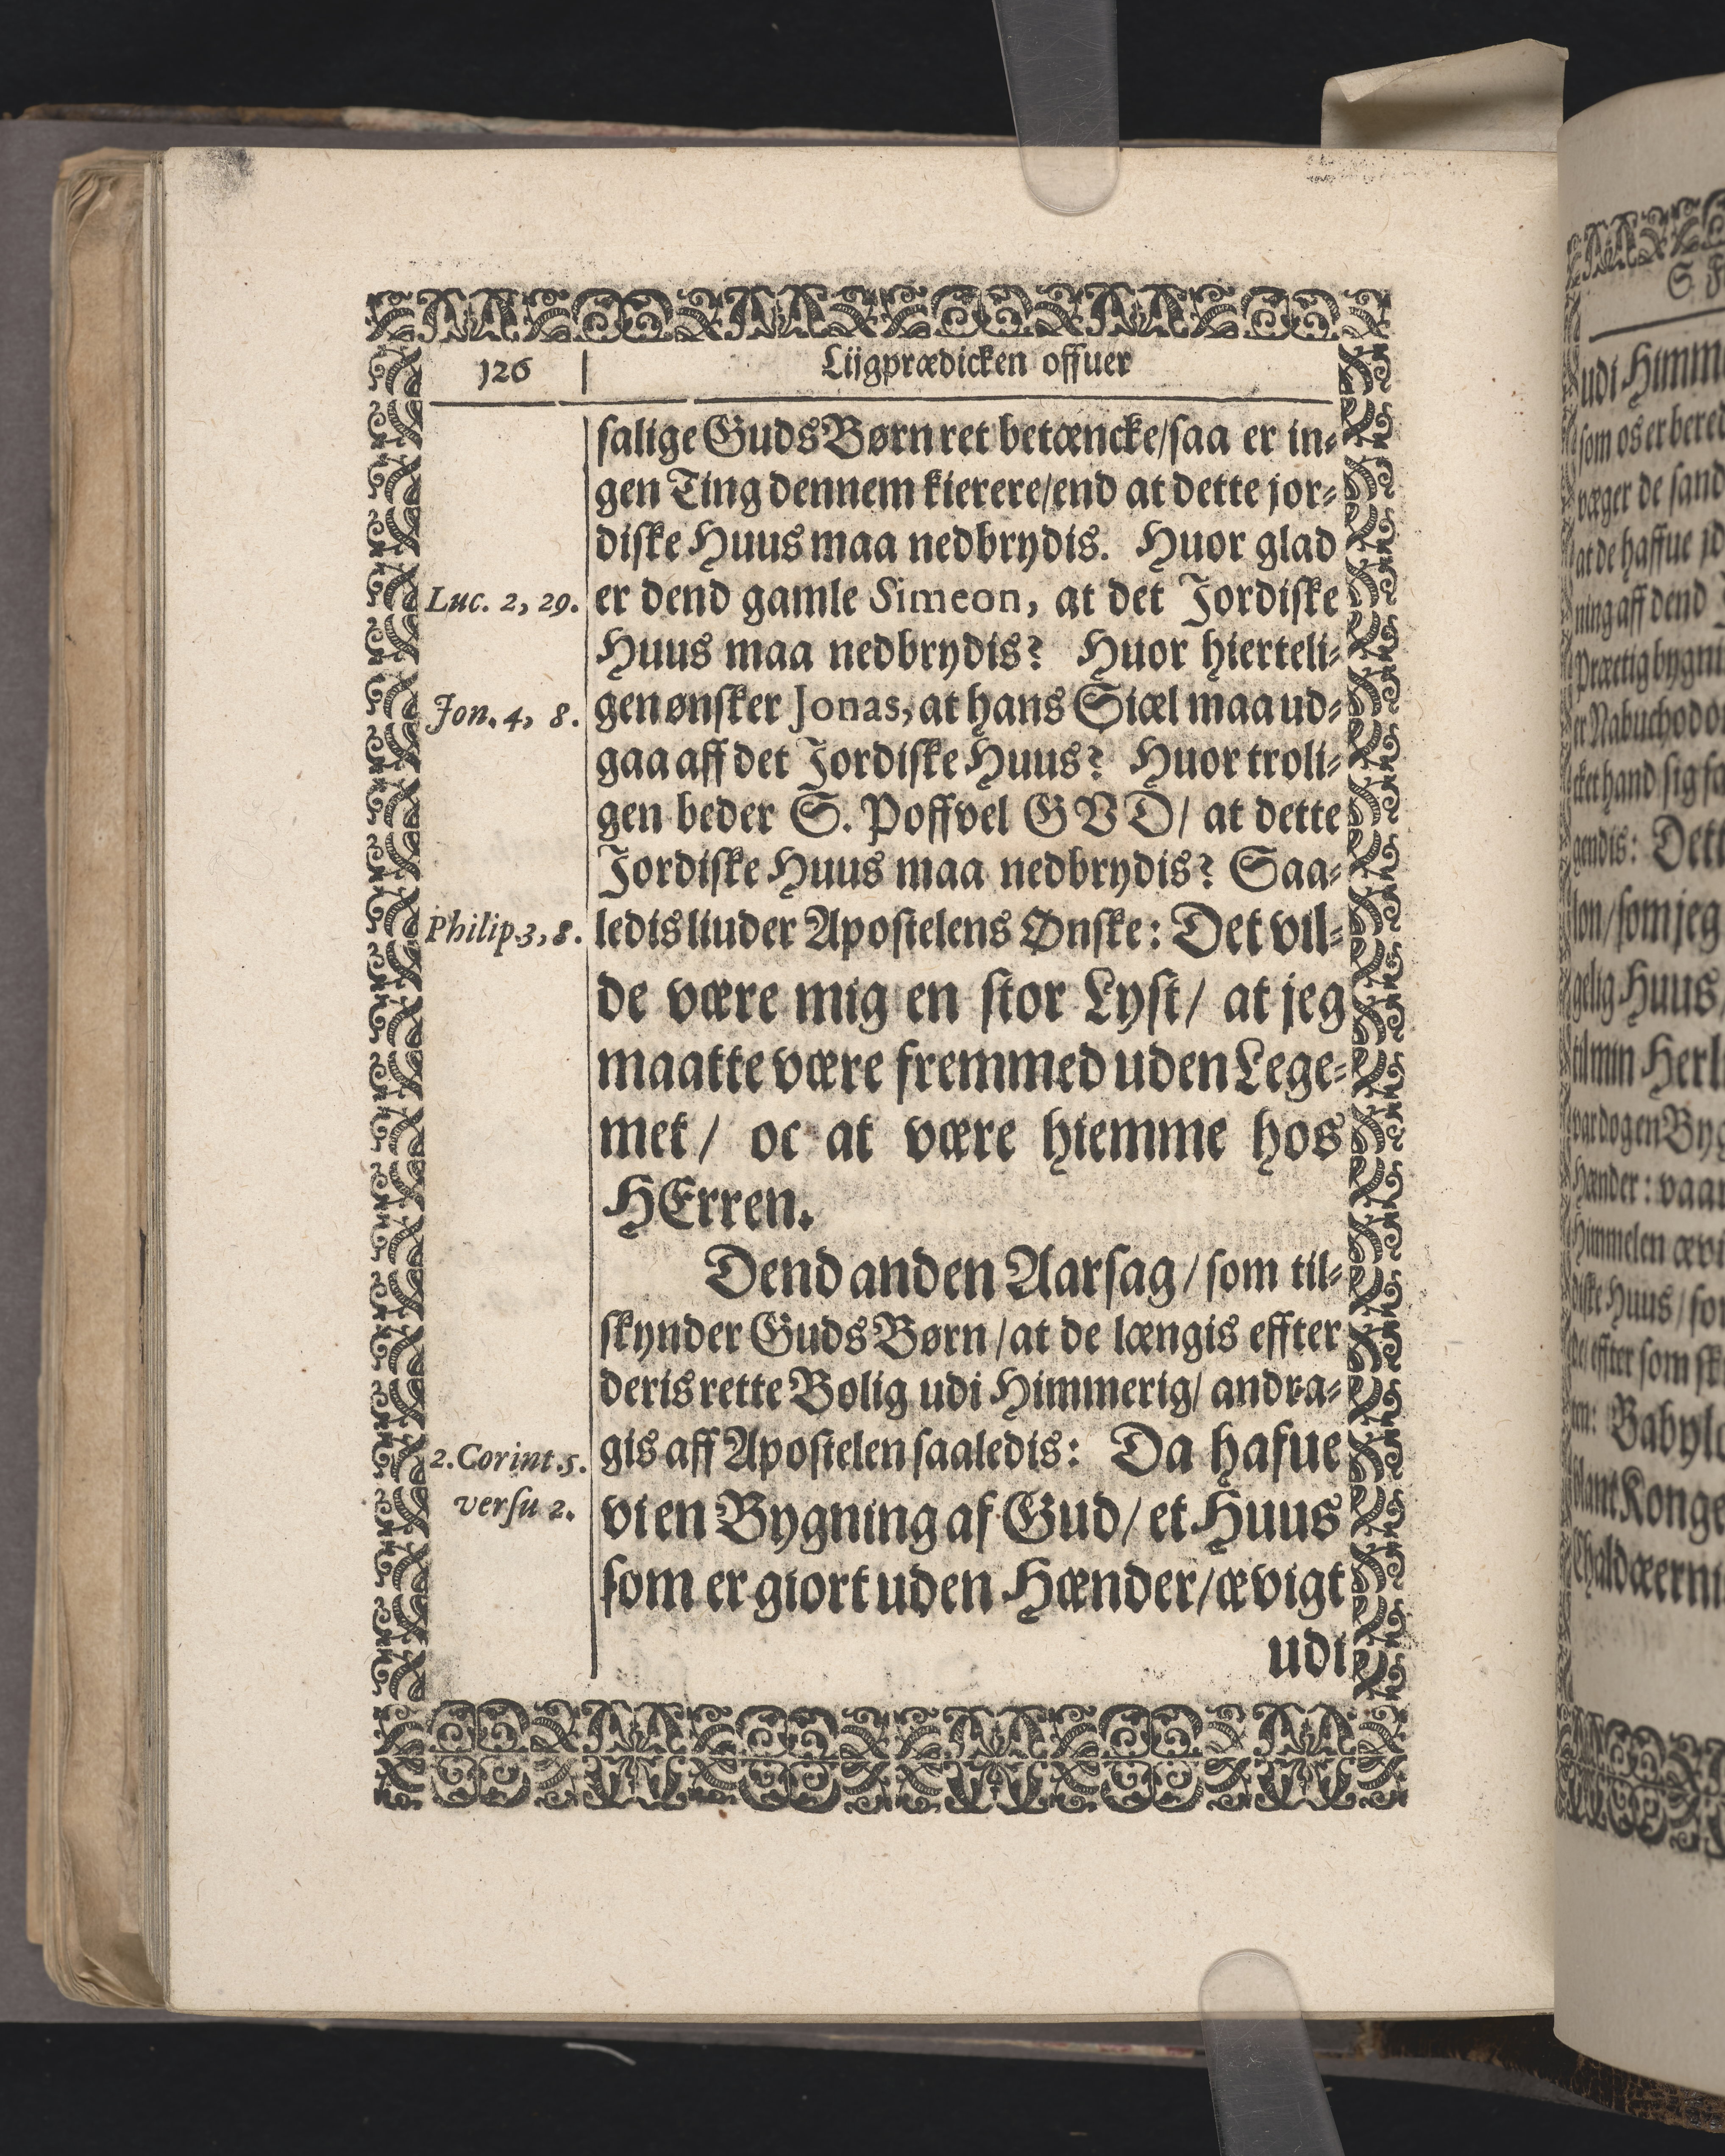 126
Liigprædicken offuer
salige Guds Børn ret betæncke/saa er in-
gen Ting dennem kierere/end at dette jor-
diske Huus maa nedbrydis. Huor glad
Luc. 2, 29.
er dend gamle Simeon, at det Jordiske
Huus maa nedbrydis? Huor hierteli-
Jon. 4, 8.
gen ønsker Jonas, at hans Siæl maa ud-
gaa aff det Jordiske Huus? Huor troli-
gen beder S. Poffvel GVD/ at dette
Jordiske Huus maa nedbrydis? Saa-
Philip 3, 8.
ledis liuder Apostelens Ønske: Det vil-
de være mig en stor Lyst/ at jeg
maatte være fremmed uden Lege-
met/ oc at være hiemme hos
HErren.
Dend anden Aarsag/som til-
skynder Guds Børn/at de længis effter
deris rette Bolig udi Himmerig/ andra-
2. Corint. 5.
gis aff Apostelen saaledis: Da hafue
versu 2.
vi en Bygning af Gud/ et Huus
som er giort uden Hænder/ævigt
udi
udi Himm
som os er bered
væger de sand
at de haffue
ning aff dend
Præctig bygni
er Nabuchodo
cket hand sig
Dett
lon/som jeg
gelig Huus
til min Herl
var dogen Byg
Hænder: vaar
Himmelen ævi
diske Huus/ for
effter som
Babylo
blant Konge
Chaldæerni